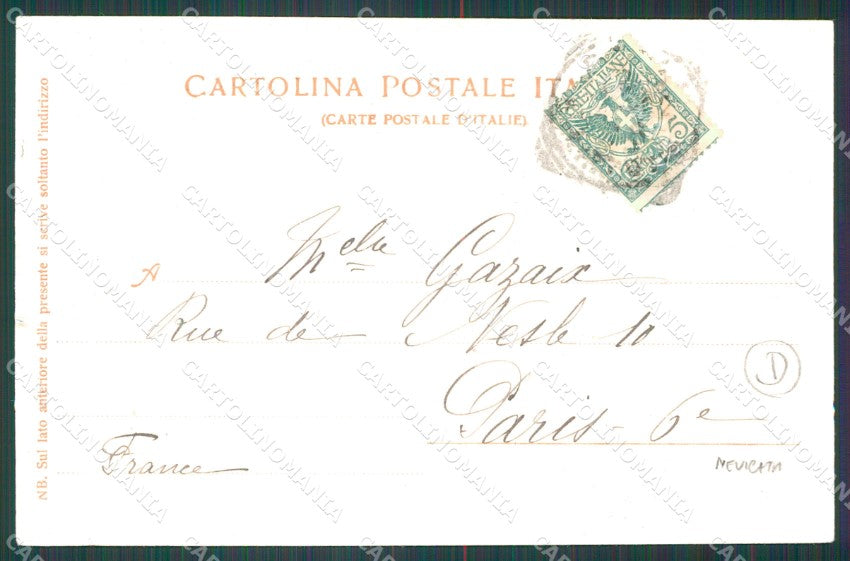 CARTOLINA POSTALE ITA
(CARTE POSTALE D'ITALIE)
NB. Sul lato anteriore della presente si scrive soltanto l'indirizzo
A Melle Gazaix
Rue de Nesle 10
Paris 6e
France
D
NEVICATA
CARTOLINOMANIA